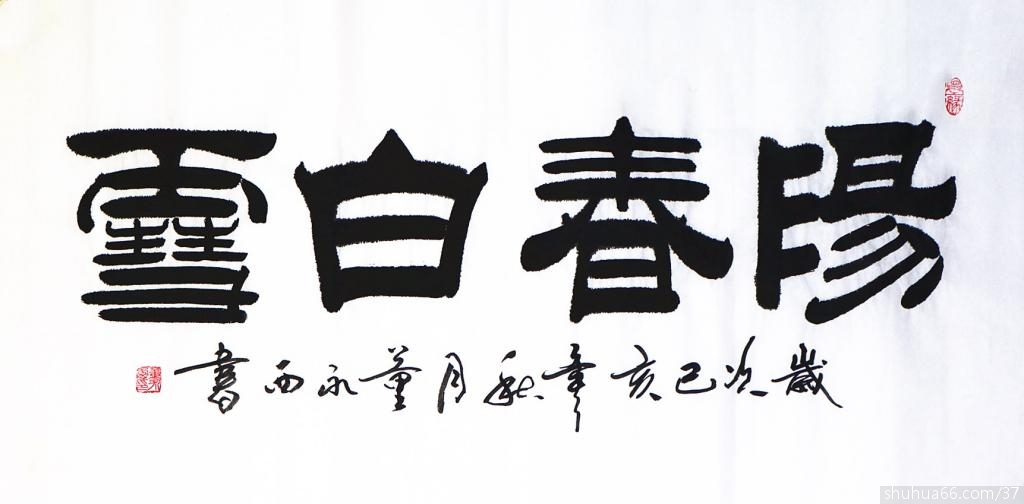 陽春白雪
歲次己亥年秋月董永西書
shuhua66.com/37